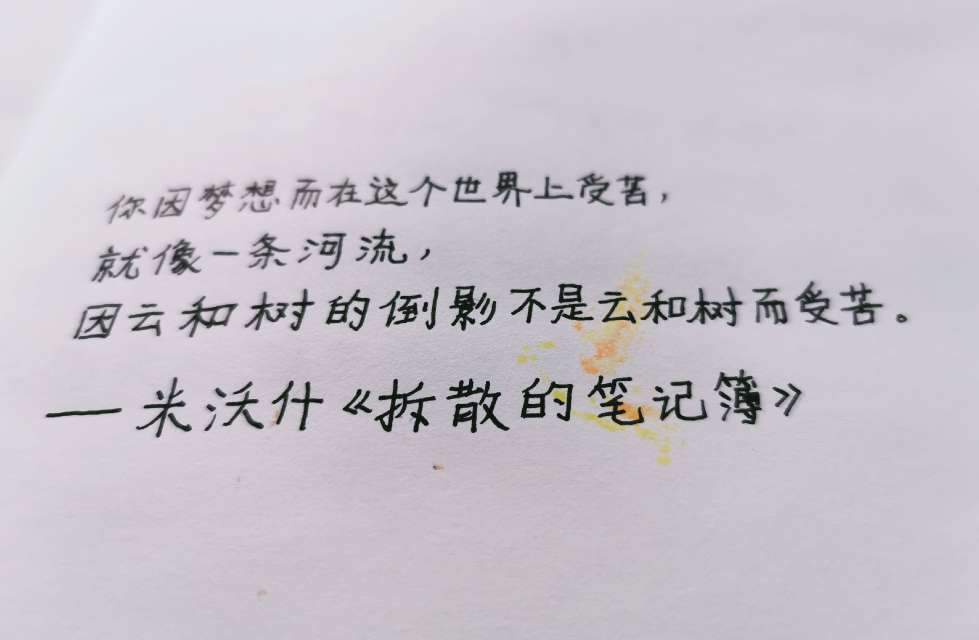 你因梦想而在这个世界上受苦，
就像一条河流，
因云和树的倒影不是云和树而受苦。
——米沃什《拆散的笔记簿》